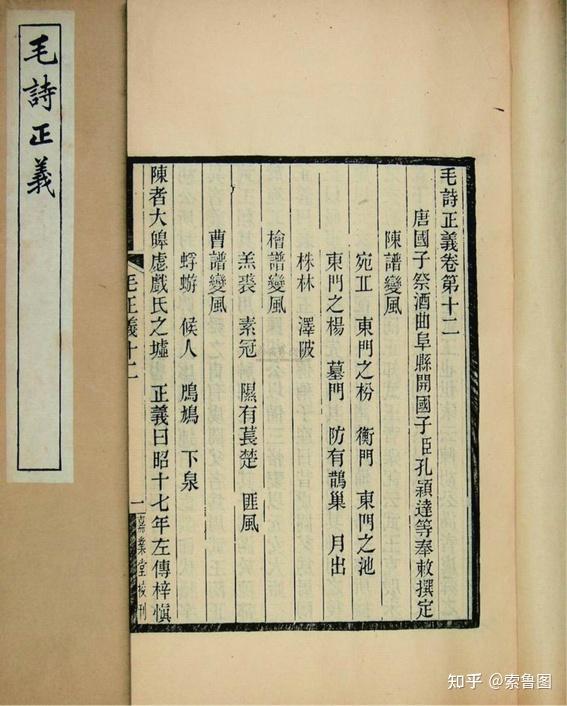 毛詩正義
毛詩正義卷第十二
唐國子祭酒曲阜縣開國子臣孔穎達等奉敕撰定
陳譜變風
宛丘 東門之枌 衡門 東門之池
東門之楊 墓門 防有鵲巢 月出
株林 澤陂
檜譜變風
羔裘 素冠 隰有萇楚 匪風
曹譜變風
蜉蝣 候人 鳲鳩 下泉
陳者大皥虙戲氏之墟 正義曰昭十七年左傳梓慎
毛正義十二 一 嘉業堂校刊
知乎 @索鲁图